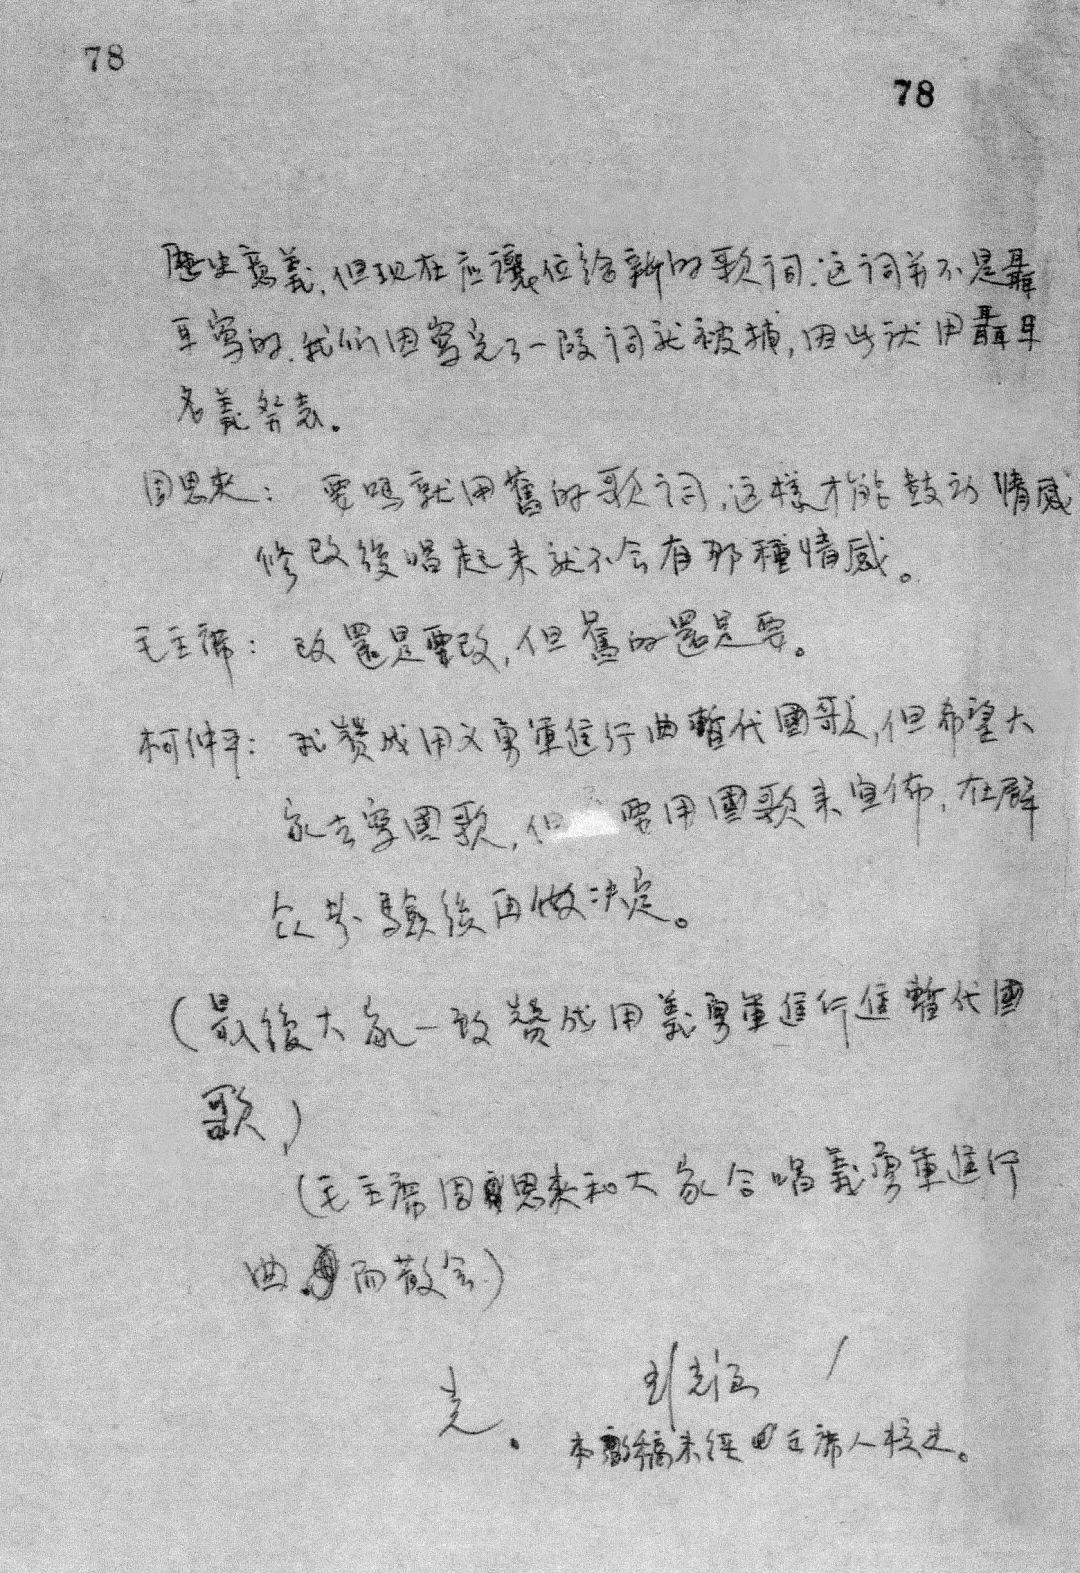 78
78
歷史意義，但现在应讓位給新的歌词。这词并不是聶
耳寫的，我们因寫完了一段词就被捕，因此就用聶耳
名義發表。
周恩來： 要吗就用舊的歌词，这樣才能鼓动情感
修改後唱起来就不会有那種情感。
毛主席： 改還是要改，但舊的還是要。
柯仲平： 我赞成用义勇軍進行曲暫代國歌，但希望大
家去寫國歌，但 要用國歌来宣佈，在群
众考驗後再做决定。
（最後大家一致赞成用義勇軍進行進暫代國
歌）
（毛主席周恩来和大家合唱義勇軍進行
曲 而散会）
完。
本 稿未經 主席人校正。